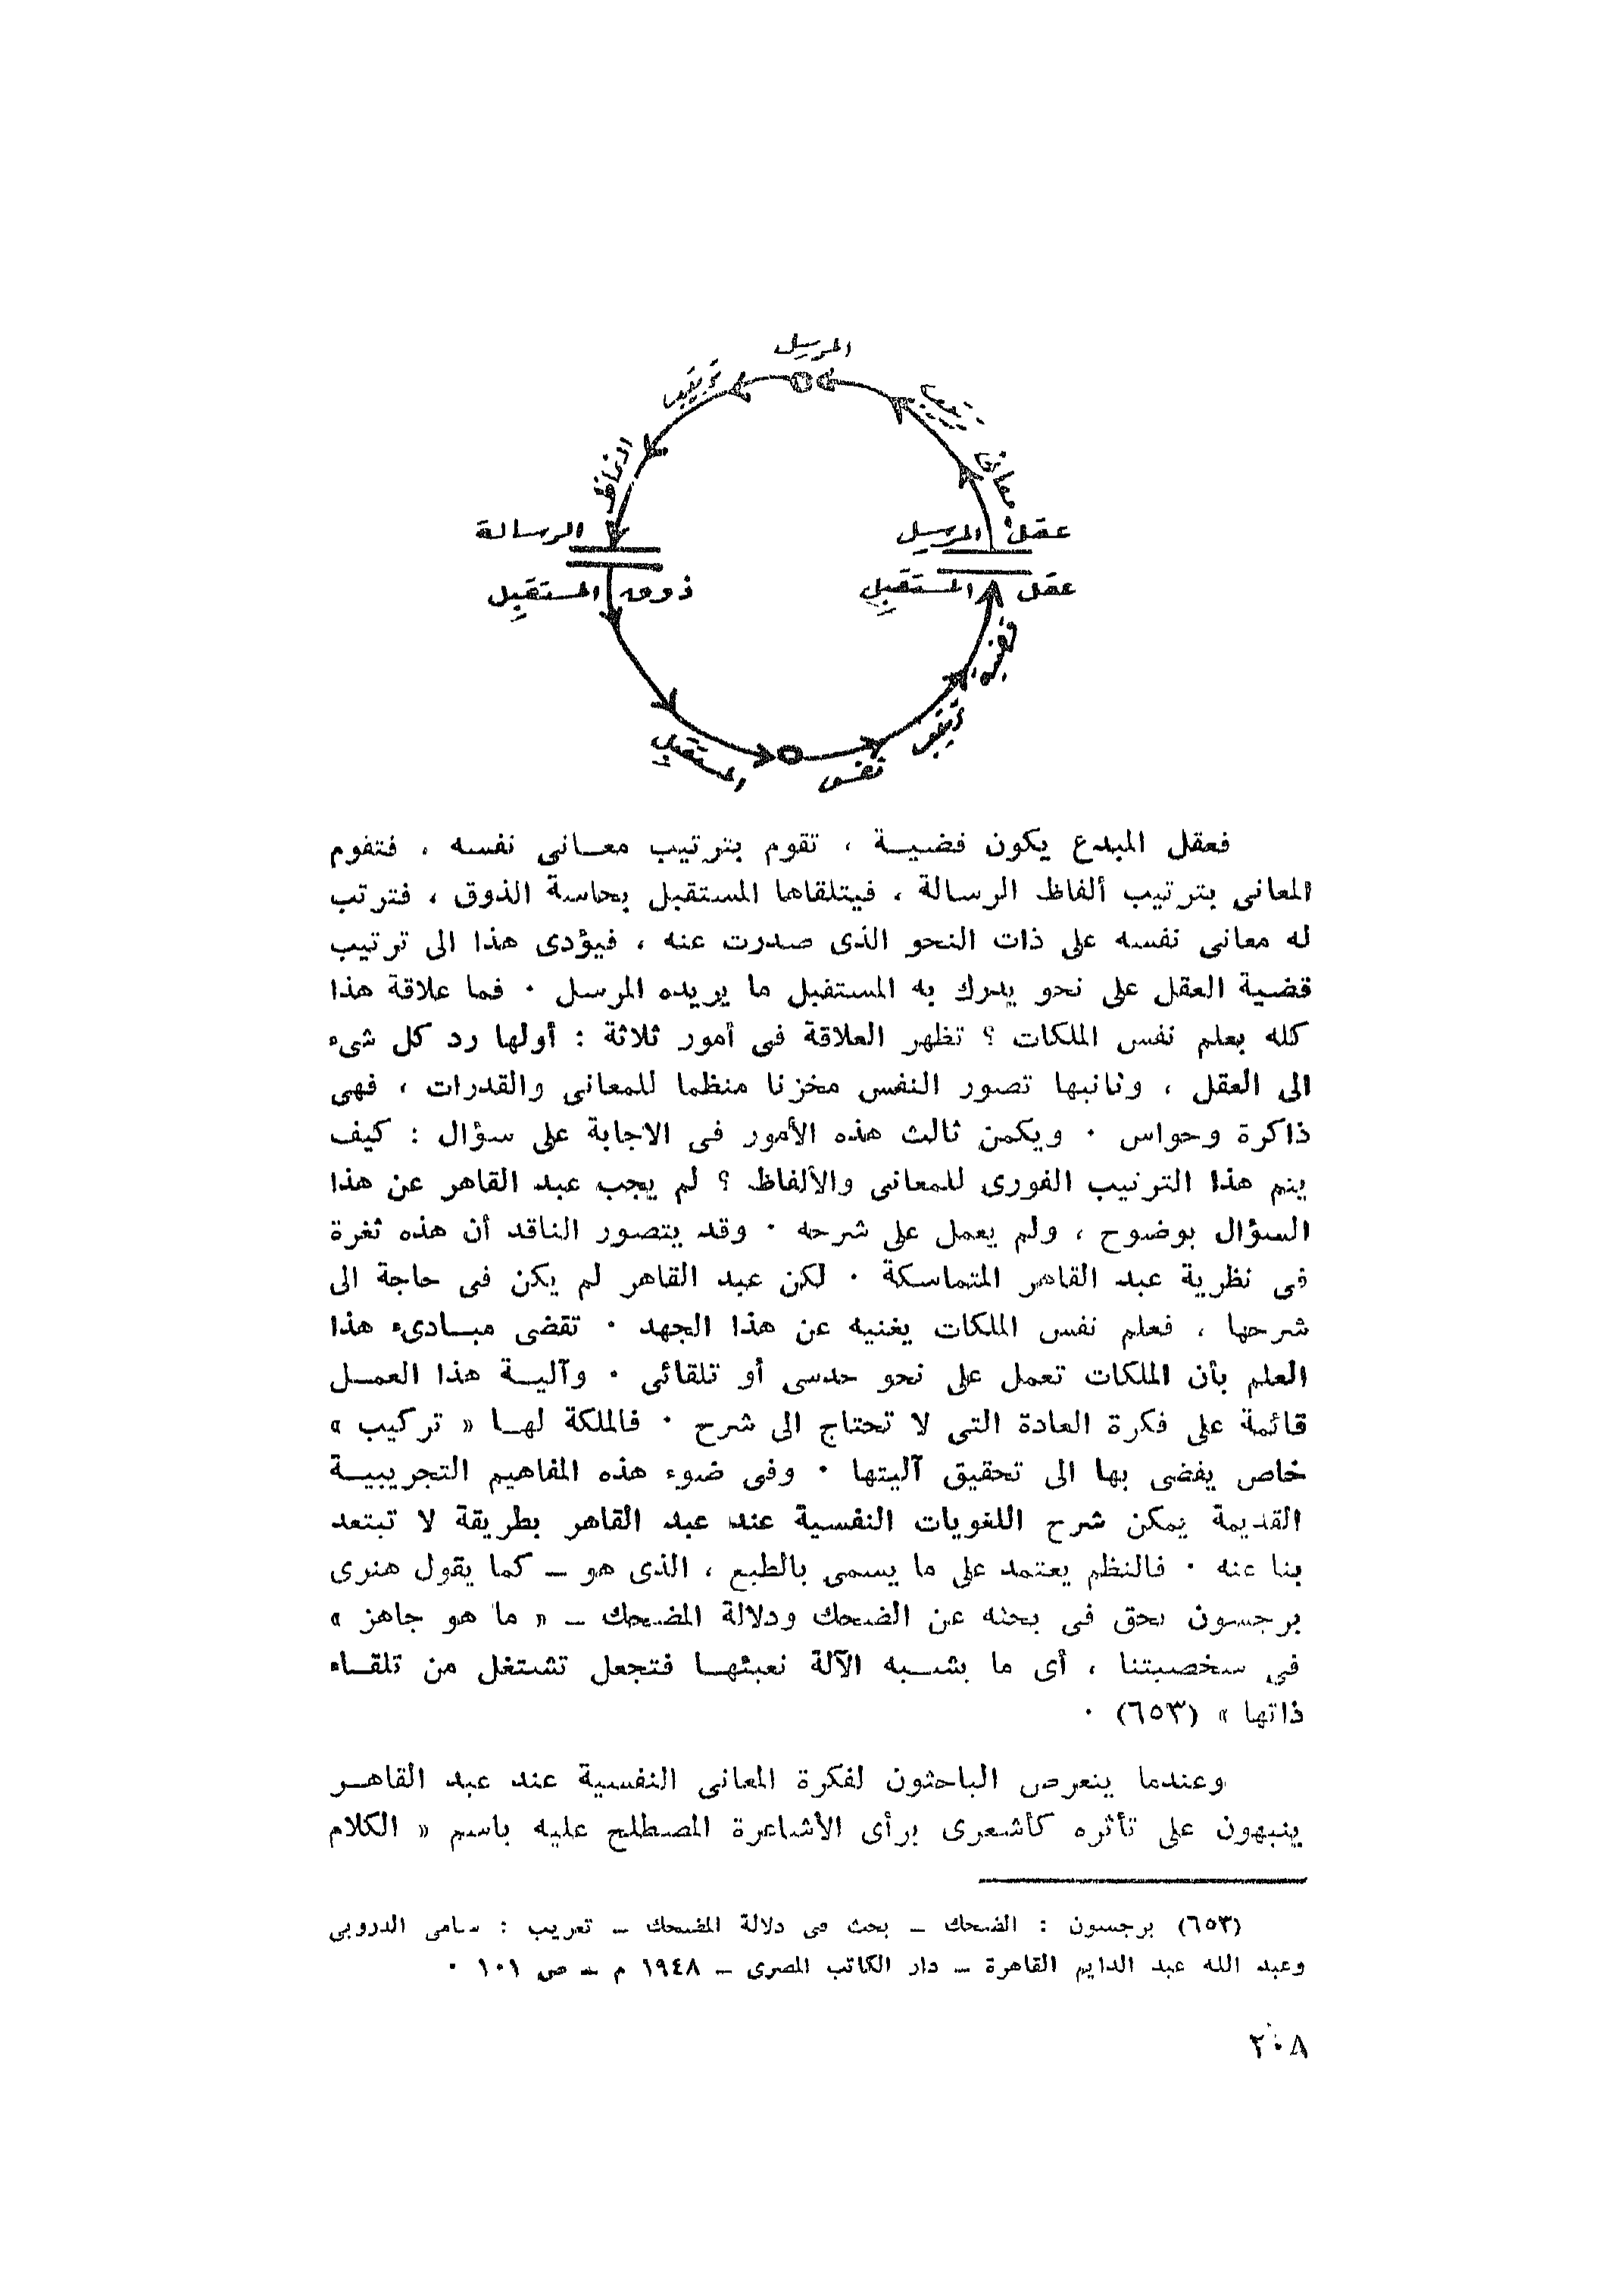 المرسل
ترتيب
ترتيب
ألفاظ
معانى
الرسالة
عقل المرسل
ذوق المستقبل
عقل المستقبل
قضيه
ترتيب
المستقبل
نفس
فعقل المبدع يكون قضيــة ، تقوم بترتيب معــانى نفسه ، فتقوم
المعانى بترتيب ألفاظ الرسالة ، فيتلقاها المستقبل بحاسة الذوق ، فترتب
له معانى نفسه على ذات النحو الذى صدرت عنه ، فيؤدى هذا الى ترتيب
قضية العقل على نحو يدرك به المستقبل ما يريده المرسل ٠ فما علاقة هذا
كله بعلم نفس الملكات ؟ تظهر العلاقة فى أمور ثلاثة : أولها رد كل شىء
الى العقل ، وثانيها تصور النفس مخزنا منظما للمعانى والقدرات ، فهى
ذاكرة وحواس ٠ ويكمن ثالث هذه الأمور فى الاجابة على سؤال : كيف
يتم هذا الترتيب الفورى للمعانى والألفاظ ؟ لم يجب عبد القاهر عن هذا
السؤال بوضوح ، ولم يعمل على شرحه ٠ وقد يتصور الناقد أن هذه ثغرة
فى نظرية عبد القاهر المتماسكة ٠ لكن عبد القاهر لم يكن فى حاجة الى
شرحها ، فعلم نفس الملكات يغنيه عن هذا الجهد ٠ تقضى مبــادىء هذا
العلم بأن الملكات تعمل على نحو حدسى أو تلقائى ٠ وآليــة هذا العمــل
قائمة على فكرة العادة التى لا تحتاج الى شرح ٠ فالملكة لهــا « تركيب »
خاص يفضى بها الى تحقيق آليتها ٠ وفى ضوء هذه المفاهيم التجريبيــة
القديمة يمكن شرح اللغويات النفسية عند عبد القاهر بطريقة لا تبتعد
بنا عنه ٠ فالنظم يعتمد على ما يسمى بالطبع ، الذى هو ــ كما يقول هنرى
برجسون بحق فى بحثه عن الضحك ودلالة المضحك ــ « ما هو جاهز »
فى شخصيتنا ، أى ما يشــبه الآلة نعبئهــا فتجعل تشتغل من تلقــاء
ذاتها » (٦٥٣) ٠
وعندما يتعرض الباحثون لفكرة المعانى النفسية عند عبد القاهــر
ينبهون على تأثره كأشعرى برأى الأشاعرة المصطلح عليه باسم « الكلام
(٦٥٣) برجسون : الضحك ــ بحث فى دلالة المضحك ــ تعريب : سامى الدروبى
وعبد الله عبد الدايم القاهرة ــ دار الكاتب المصرى ــ ١٩٤٨ م ــ ص ١٠١ ٠
٢٠٨